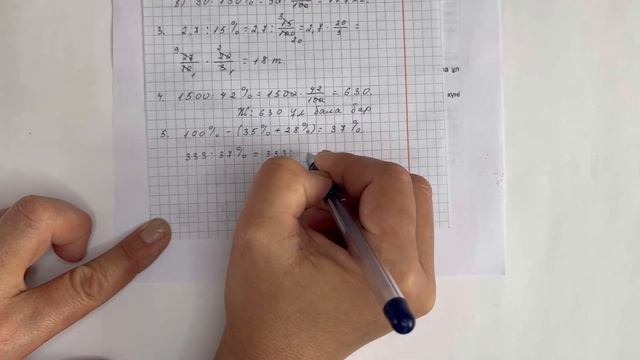 3. 2,7 : 15% = 2,7 : 15/100 = 2,7 · 20/3 =
27/10 · 20/3 = 18 т
4. 1500 · 42% = 1500 · 42/100 = 630.
Ж: 630 ұл бала бар
5. 100% - (35% + 28%) = 37%
333 : 37% = 333 :
күні